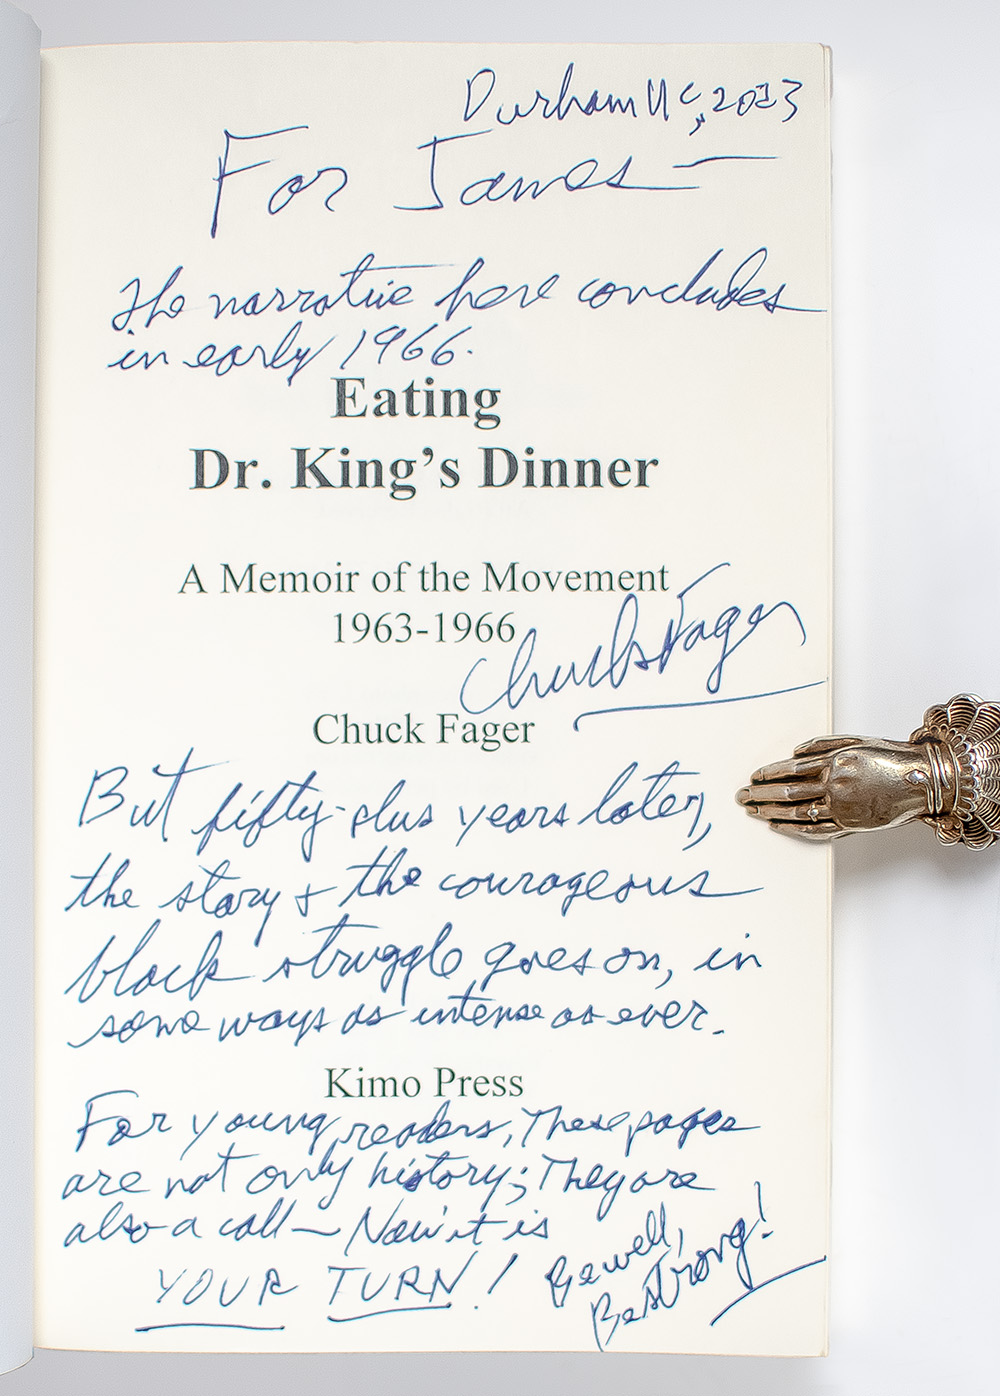 Durham NC, 2023
For James—
The narrative here concludes
in early 1966.
Eating
Dr. King's Dinner
A Memoir of the Movement
1963-1966
Chuck Fager
Chuck Fager
But fifty-plus years later,
the story + the courageous
black struggle goes on, in
some ways as intense as ever.
Kimo Press
For young readers, These pages
are not only history; They are
also a call— Now it is
YOUR TURN!
Be well,
Be strong!